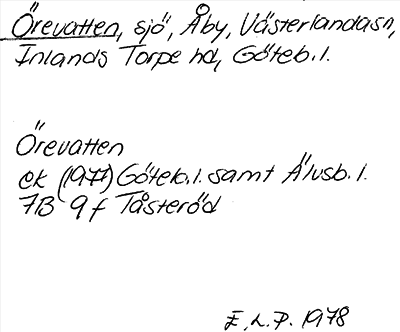 Örevatten, sjö, Åby, Västerlandasn,
Inlands Torpe hd, Göteb.l.
Örevatten
ek (1977) Göteb.l. samt Älvsb.l.
7B 9f Tåsteröd
E.L.P. 1978